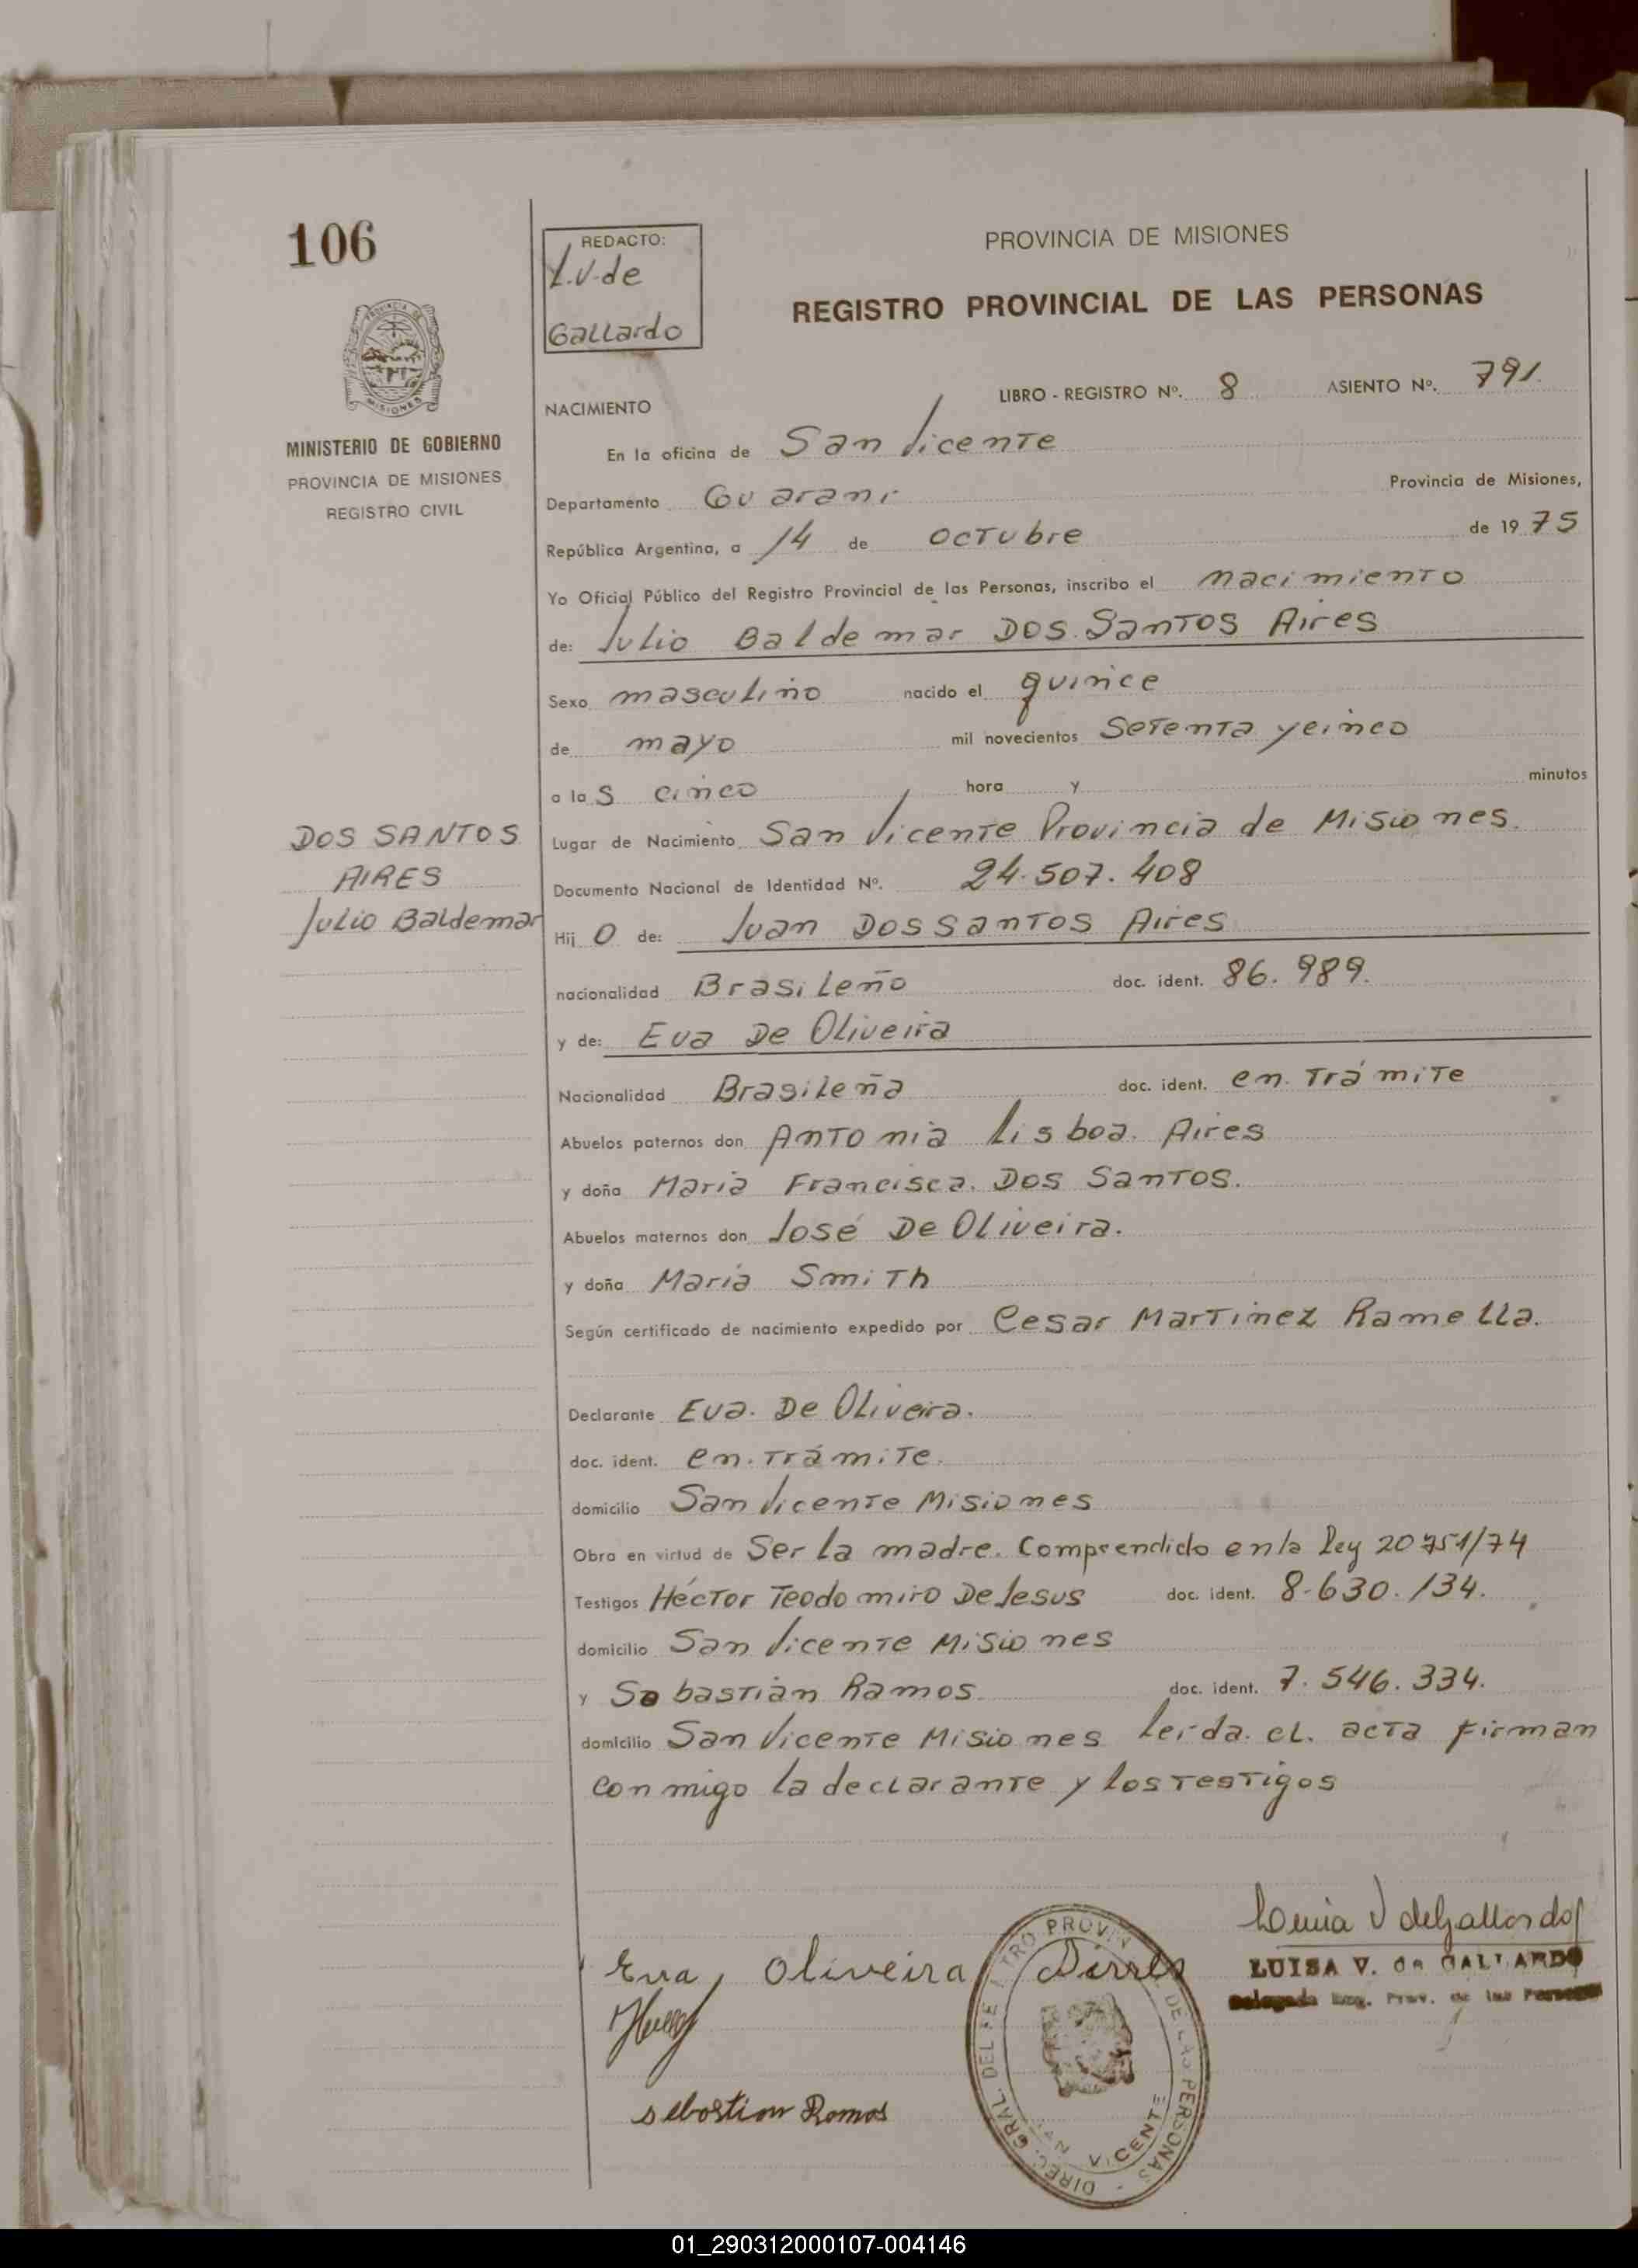 106
REDACTO:
L.V. de
Gallardo
PROVINCIA DE MISIONES
REGISTRO PROVINCIAL DE LAS PERSONAS
PROVINCIA DE
MISIONES
MINISTERIO DE GOBIERNO
PROVINCIA DE MISIONES
REGISTRO CIVIL
LIBRO - REGISTRO Nº. 8 ASIENTO Nº. 791.
NACIMIENTO
En la oficina de San Vicente
Departamento Guarani Provincia de Misiones,
República Argentina, a 14 de octubre de 1975
Yo Oficial Público del Registro Provincial de las Personas, inscribo el nacimiento
de: Julio Baldemar Dos Santos Aires
Sexo masculino nacido el quince
de mayo mil novecientos setenta y cinco
a las cinco hora y minutos
Lugar de Nacimiento San Vicente Provincia de Misiones.
Documento Nacional de Identidad Nº. 24.507.408
DOS SANTOS
AIRES
Julio Baldemar
Hijo de: Juan Dos Santos Aires
nacionalidad Brasileño doc. ident. 86.989.
y de: Eva De Oliveira
Nacionalidad Brasileña doc. ident. en trámite
Abuelos paternos don Antonia Lisboa. Aires
y doña Maria Francisca. Dos Santos.
Abuelos maternos don José De Oliveira.
y doña Maria Smith
Según certificado de nacimiento expedido por Cesar Martinez Ramella.
Declarante Eva. De Oliveira.
doc. ident. en. trámite.
domicilio San Vicente Misiones
Obra en virtud de ser la madre. Comprendido en la Ley 20751/74
Testigos Héctor Teodomiro De Jesus doc. ident. 8.630.134.
domicilio San Vicente Misiones
y Sebastián Ramos doc. ident. 7.546.334.
domicilio San Vicente Misiones leída. el. acta firman
conmigo la declarante y los testigos
Eva, Oliveira
Sebastian Ramos
DIREC. GRAL. DEL PROVIN DE LAS PERSONAS
SAN VICENTE
LUISA V. de GALLARDO
Delegada Reg. Prov. de las Personas
01_290312000107-004146